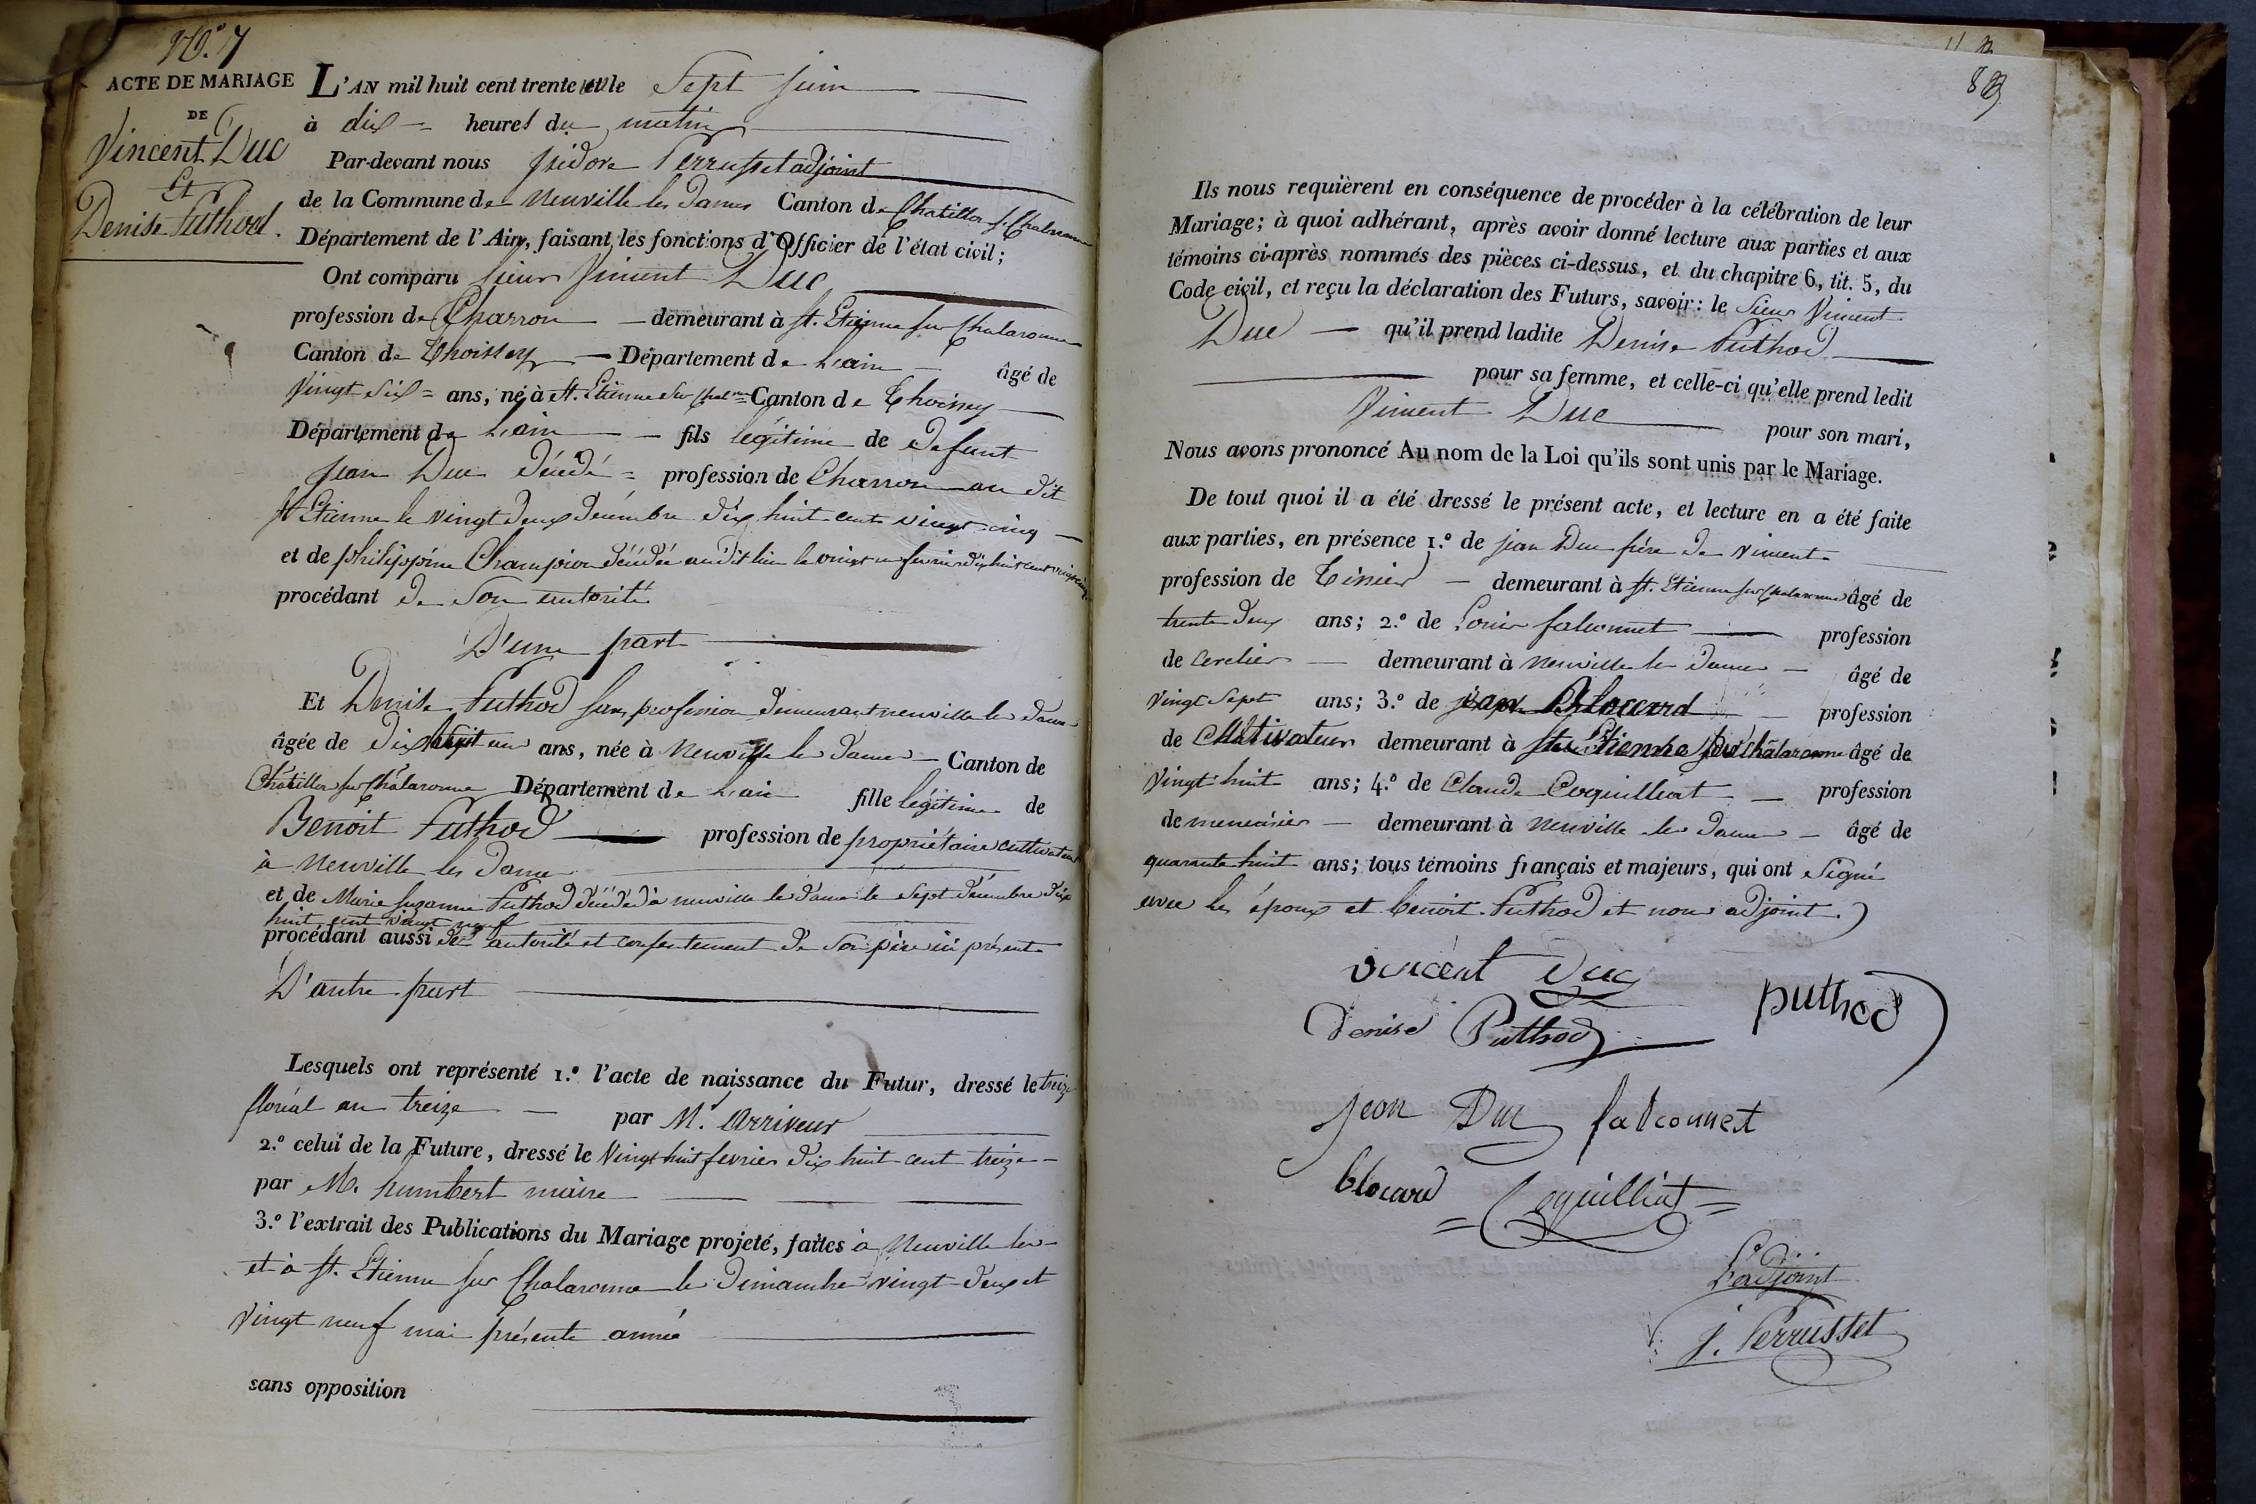 N°. 7
ACTE DE MARIAGE
DE
Vincent Duc
Et
Denise Puthod.
L'AN mil huit cent trente et un le Sept juin
à dix heures du matin
Par-devant nous Isidore Perrusset adjoint
de la Commune de Neuville les Dames Canton de Chatillon s. Chalaronne
Département de l'Ain, faisant les fonctions d'Officier de l'état civil;
Ont comparu Sieur Vincent Duc
profession de Charron demeurant à St. Etienne sur Chalaronne
Canton de Thoissey Département de L'ain âgé de
Vingt Six ans, né à St. Etienne sur Chal.ne Canton de Thoissey
Département de L'ain fils légitime de défunt
jean Duc décédé profession de Charron au dit
St Etienne le vingt deux décembre dix huit cent vingt cinq
et de philippine Champion décédée au dit lieu le
procédant de Son autorité
D'une part
Et Denise Puthod sans profession demeurant neuville les Dames
âgée de Dix huit ans, née à Neuville les Dames Canton de
Châtillon sur Chalaronne Département de L'ain fille légitime de
Benoit Puthod profession de propriétaire cultivateur
à Neuville les Dames
et de Marie Suzanne Puthod décédée à neuville les Dames le Sept décembre dix
huit cent vingt neuf
procédant aussi de autorité et consentement de Son père ici présent
D'autre part
Lesquels ont représenté 1.° l'acte de naissance du Futur, dressé le treize
floréal an treize par M. Arriveur
2.° celui de la Future, dressé le Vingt huit fevrier dix huit cent treize
par M. humbert maire
3.° l'extrait des Publications du Mariage projeté, faites à Neuville les
et à St. Etienne sur Chalaronne le Dimanche vingt deux et
Vingt neuf mai présente année
sans opposition
89
Ils nous requièrent en conséquence de procéder à la célébration de leur
Mariage; à quoi adhérant, après avoir donné lecture aux parties et aux
témoins ci-après nommés des pièces ci-dessus, et du chapitre 6, tit. 5, du
Code civil, et reçu la déclaration des Futurs, savoir: le Sieur Vincent
Duc qu'il prend ladite Denise Puthod
pour sa femme, et celle-ci qu'elle prend ledit
Vincent Duc pour son mari,
Nous avons prononcé Au nom de la Loi qu'ils sont unis par le Mariage.
De tout quoi il a été dressé le présent acte, et lecture en a été faite
aux parties, en présence 1.° de jean Duc frère de vincent
profession de demeurant à St. Etienne sur Chalaronne âgé de
trente deux ans; 2.° de Louis falconnet profession
de cerclier demeurant à Neuville les Dames âgé de
vingt Sept ans; 3.° de jean Blocard profession
de Cultivateur demeurant à St. Etienne sur chalaronne âgé de
Vingt huit ans; 4.° de Claude Coquilliat profession
de menuisier demeurant à Neuville les Dames âgé de
quarante huit ans; tous témoins français et majeurs, qui ont Signé
avec les époux et benoit Puthod et nous adjoint.
vincent Duc
puthod
Denise Puthod
jean Duc falconnet
blocard Coquilliat
L'adjoint
j. Perrusset